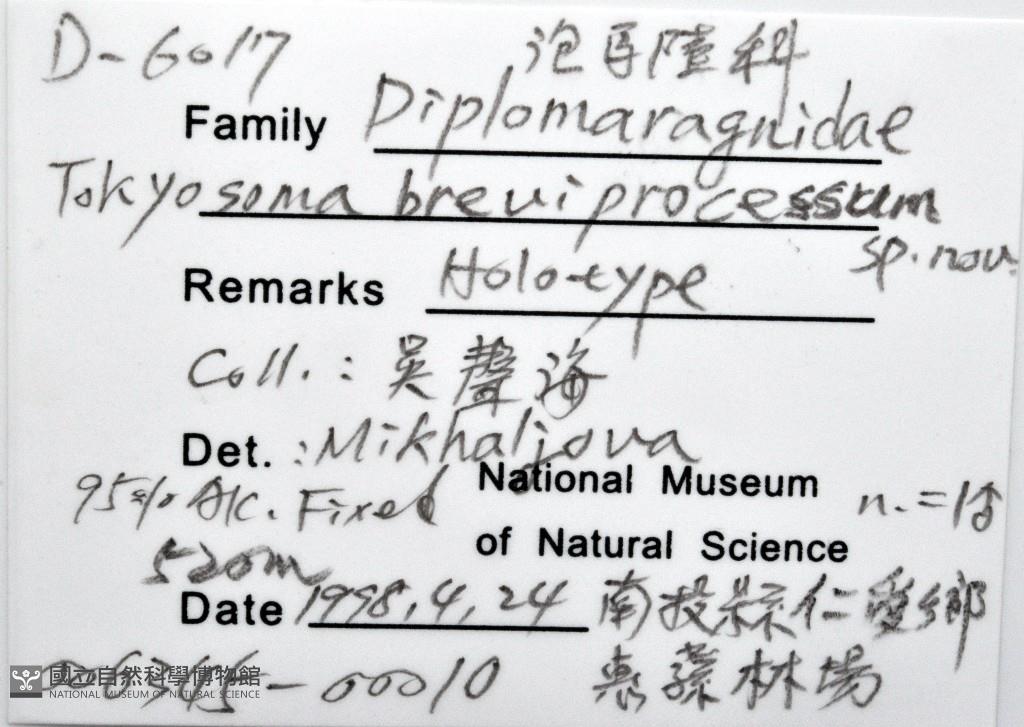 D-6017 泡馬陸科
Family Diplomaragnidae
Tokyosoma breviprocessum
sp. nov.
Remarks Holotype
Coll.: 吳聲海
Det.: Mikhaljova
95% Alc. Fixed National Museum n.=1♂
520m of Natural Science
Date 1998,4,24 南投縣仁愛鄉
-00010 惠蓀林場
國立自然科學博物館
NATIONAL MUSEUM OF NATURAL SCIENCE